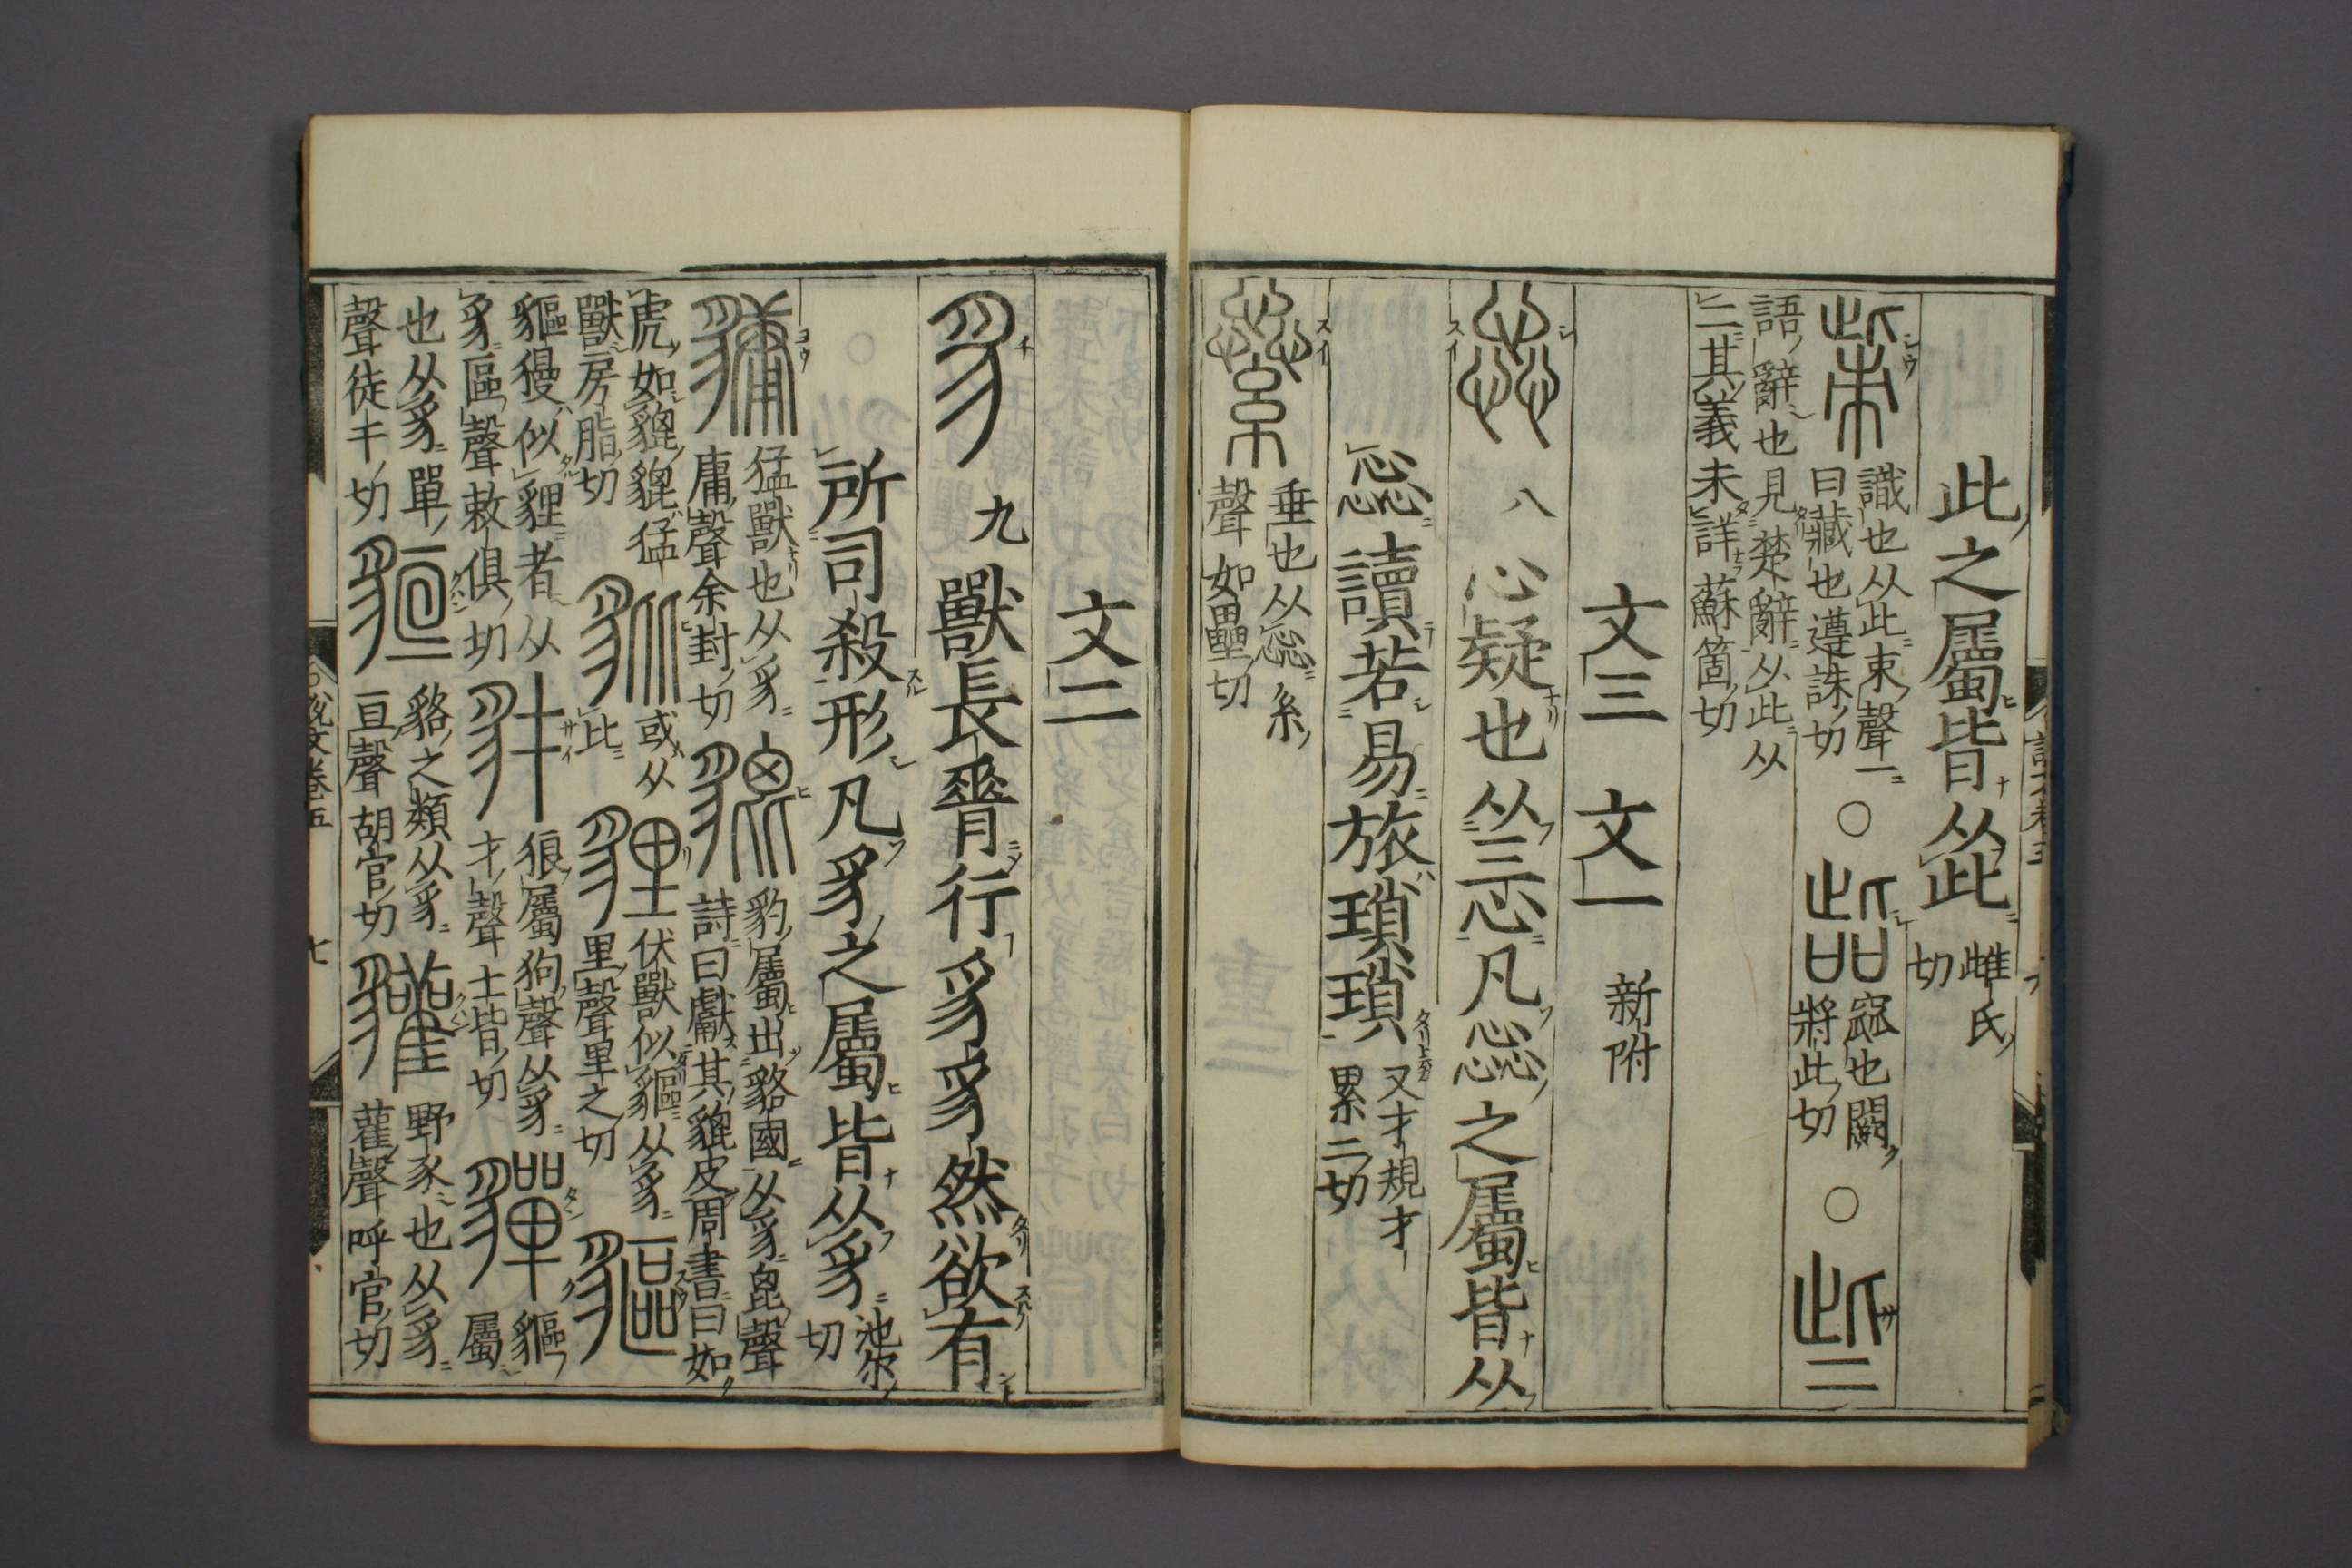 此之屬皆从此 雌氏切
㭰 識也从此朿聲一曰藏也遵誅切 ○ 呰 窳也闕將此切 ○ 些
語辭也見楚辭从此从二其義未詳蘇箇切
文三 文一 新附
惢 八 心疑也从三心凡惢之屬皆从
惢讀若易旅瑣瑣 又才規才累二切
繠 垂也从惢糸聲如壘切
文二
豸 九 獸長脊行豸豸然欲有
○ 所司殺形凡豸之屬皆从豸 池尔切
𧳅 猛獸也从豸庸聲余封切 貔 豹屬出貉國从豸𣬉聲詩曰獻其貔皮周書曰如
虎如貔貔猛獸房脂切 豼 或从比 貍 伏獸似貙从豸里聲里之切 貙
貙獌似貍者从豸區聲敕俱切 豺 狼屬狗聲从豸才聲士皆切 貚 貙屬
也从豸單聲徒干切 貆 貉之類从豸亘聲胡官切 貛 野豕也从豸雚聲呼官切
說文卷五 七